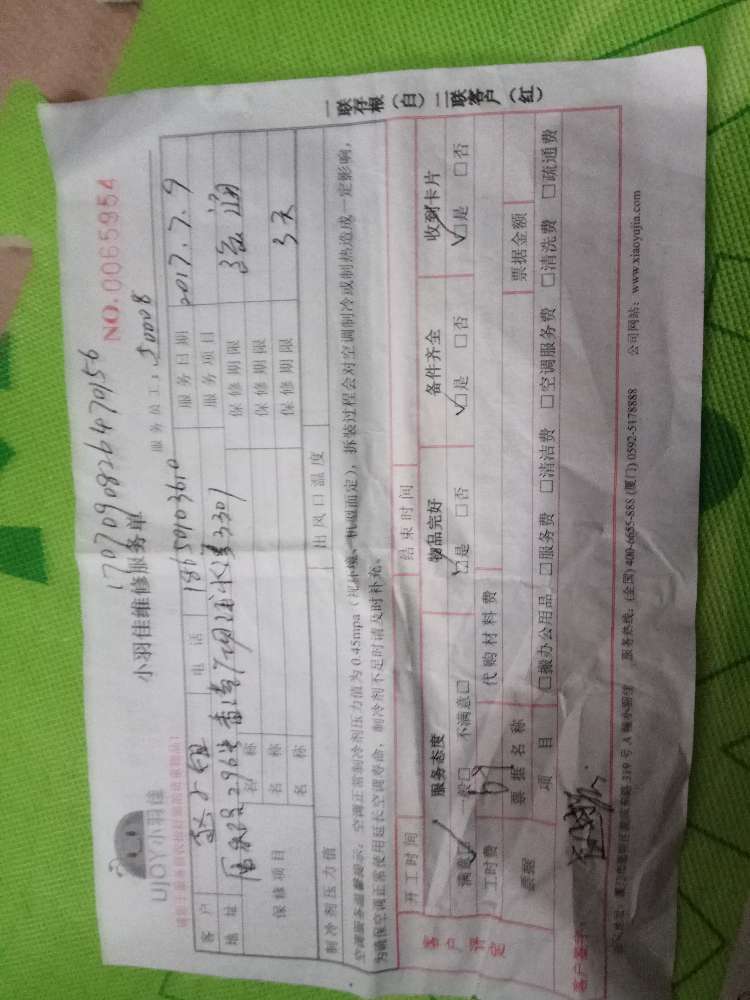 1707090826470156
UJOY小羽佳 小羽佳维修服务单 NO.0065954
服务员工：50008
客户 赵小姐 电话 18650103610 服务日期 2017.7.9
地址 服务项目
保修项目 名称 保修期限
名称 保修期限
名称 保修期限 3天
制冷剂压力值 出风口温度
空调服务温馨提示：空调正常制冷剂压力值为0.45mpa（视环境、机型而定），拆装过程会对空调制冷或制热造成一定影响，
为确保空调正常使用延长空调寿命，制冷剂不足时请及时补充。
开工时间 结束时间
客户评定 服务态度 物品完好 备件齐全 收到卡片
满意□ 一般□ 不满意□ □是 □否 □是 □否 □是 □否
工时费 代购材料费
票据 票据名称 票据金额
项目 □搬办公用品 □服务费 □清洁费 □空调服务费 □清洗费 □疏通费
客户签字：
服务热线：(全国) 400-6655-888 (厦门) 0592-5178888 公司网站：www.xiaoyujia.com
一联存根（白）二联客户（红）